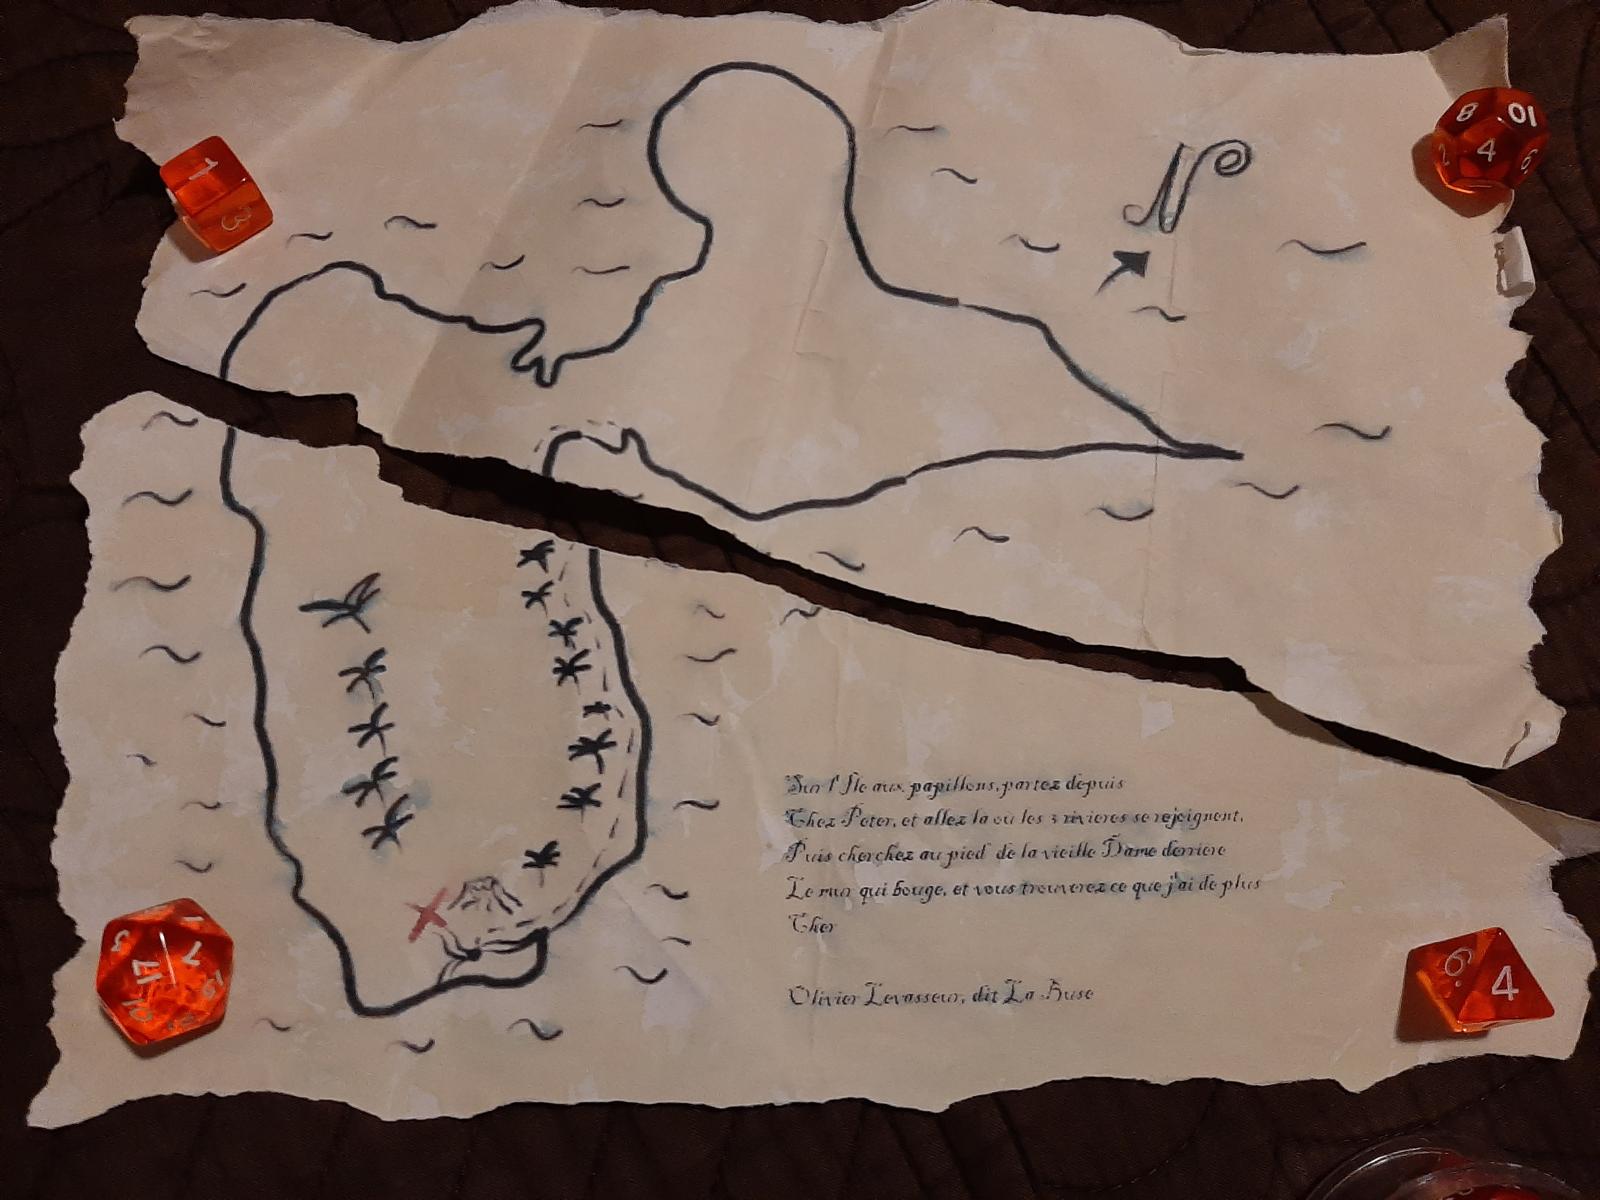 N
1
3
8
10
2
4
6
Sur l'Île aux papillons, partez depuis
Chez Peter, et allez là où les 3 rivieres se rejoignent,
Puis cherchez au pied de la vieille Dame derriere
Le mur qui bouge, et vous trouverez ce que j'ai de plus
Cher
Olivier Levasseur, dit La Buse
1
3
7
17
19
6
4